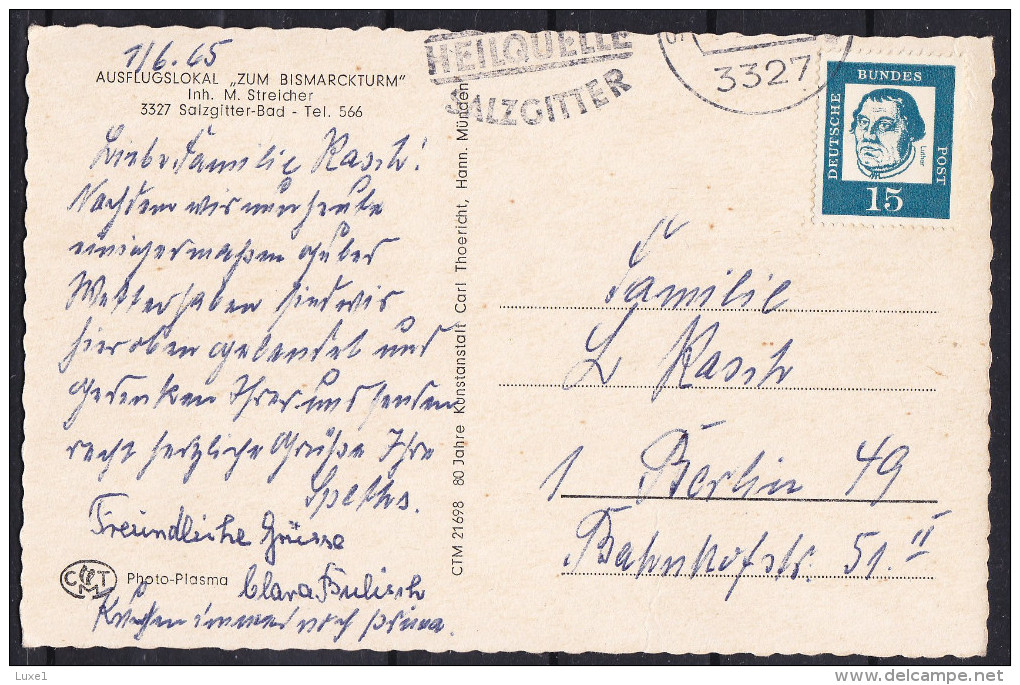 1/6.65
AUSFLUGSLOKAL „ZUM BISMARCKTURM"
Inh. M. Streicher
3327 Salzgitter-Bad - Tel. 566
Liebe Familie Rasch!
Nachdem wir nun heute
einigermaßen gutes
Wetter haben sind wir
hier oben gelandet und
gedenken Ihrer und senden
recht herzliche Grüße Ihre
Speths.
Freundliche Grüsse
Clara
CMT
Photo-Plasma
Kuchen immer noch prima.
CTM 21698 80 Jahre Konstanstalt Carl Thoericht, Hann. Münden
HEILQUELLE
SALZGITTER
3327
DEUTSCHE
BUNDES
POST
Luther
15
Familie
L Rasch
1 Berlin 49
Bahnhofstr. 51. II
Luxe1
delcampe.net